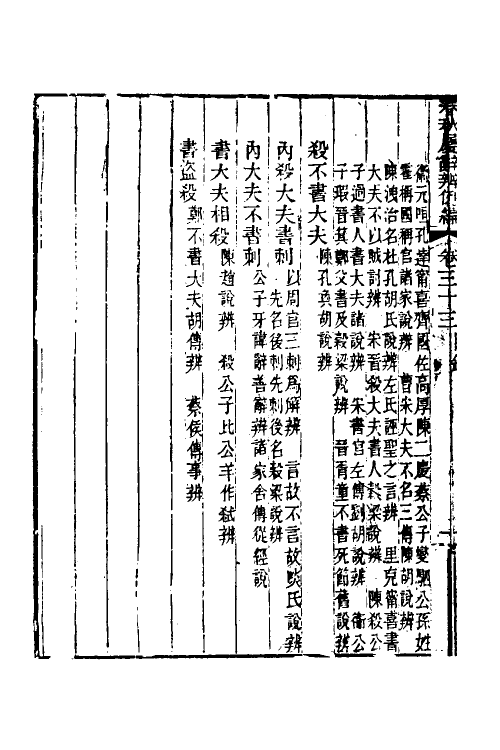 春秋屬辭辨例編 卷三十三
衞元咺孔達甯喜齊國佐高厚陳二慶蔡公子燮駟公孫姓
霍稱國稱官諸家說辨 曹宋大夫不名三傳陳胡說辨
陳洩治名杜孔胡氏說辨左氏誣聖之言辨 里克甯喜書
大夫不以賊討辨 宋晉殺大夫書人穀梁說辨 陳殺公
子過書人書大夫諸說辨 宋書官左傳劉胡說辨 衞公
子瑕晉箕鄭父書及穀梁說辨 晉胥童不書死節舊說辨
殺不書大夫 陳孔奐胡說辨
內殺大夫書刺 以周官三刺爲解辨 言故不言故啖氏說辨
先名後刺先刺後名穀梁說辨
內大夫不書刺 公子牙諱辭善辭辨諸家舍傳從經說
書大夫相殺 陳趙說辨 殺公子比公羊作弒辨
書盜殺 鄭不書大夫胡傳辨 蔡侯傳事辨